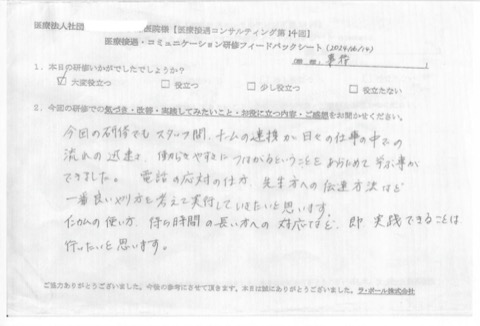 医療法人社団 医院様【医療接遇コンサルティング第14回】
医療接遇・コミュニケーション研修フィードバックシート(2024.06/14)
(職種: 事務 )
1. 本日の研修いかがでしたでしょうか?
☑ 大変役立つ □ 役立つ □ 少し役立つ □ 役立たない
2. 今回の研修での気づき・改善・実践してみたいこと・お役に立つ内容・ご感想をお聞かせください。
今回の研修でもスタッフ間、チームの連携が日々の仕事の中での
流れの迅速さ、働きやすさにつながるということをあらためて学ぶ事が
できました。 電話の応対の仕方、先生方への伝達方法など
一番良いやり方を考えて実行していきたいと思います。
インカムの使い方、待ち時間の長い方への対応など、即実践できることは
行いたいと思います。
ご協力ありがとうございました。今後の参考にさせて頂きます。本日は誠にありがとうございました。ラ・ポール株式会社